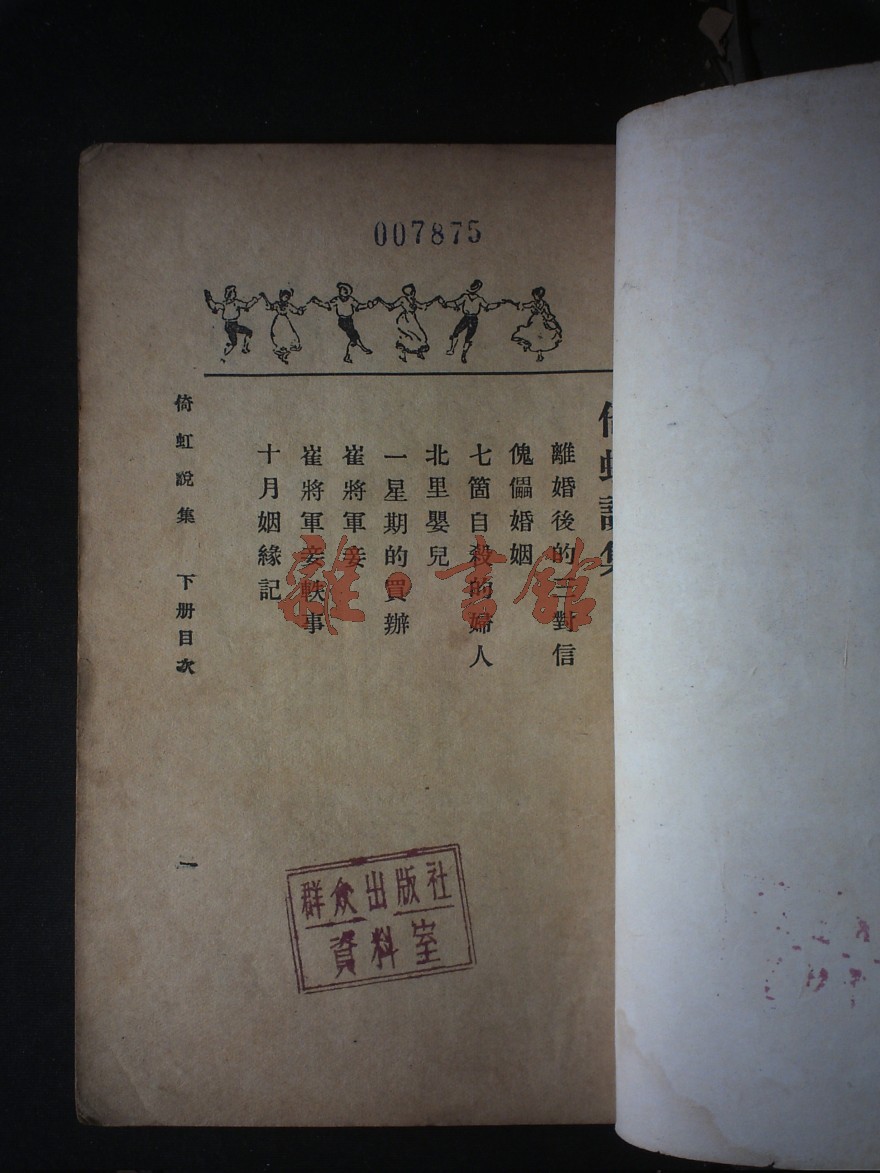 007875
倚虹說集
離婚後的三對信
傀儡婚姻
七箇自殺的婦人
北里嬰兒
一星期的買辦
崔將軍妾
崔將軍妾軼事
十月姻緣記
倚虹說集 下册目次
一
雜·書館
群众出版社
資料室